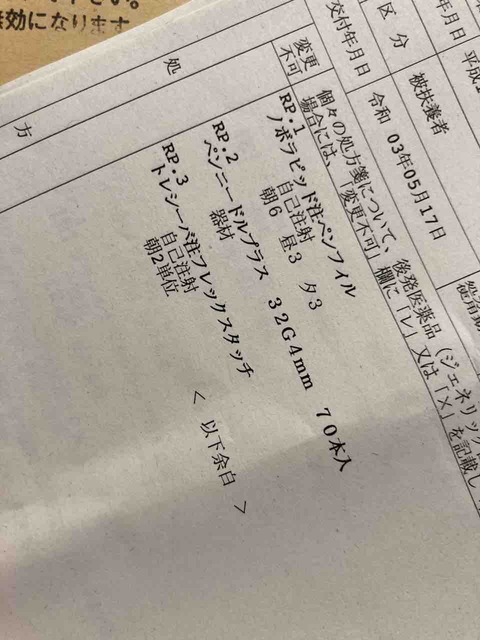 さい。
無効になります
平成
年月日
区分
被扶養者
交付年月日
令和 03年05月17日
処
方
変更
不可
個々の処方箋について、後発医薬品(ジェネリック
場合には、「変更不可」欄に「レ」又は「×」を記載し
RP.1
ノボラピッド注ペンフィル
自己注射
朝6 昼3 夕3
RP.2
ペンニードルプラス 32G4mm 70本入
器材
RP.3
トレシーバ注フレックスタッチ
自己注射
朝2単位
< 以下余白 >